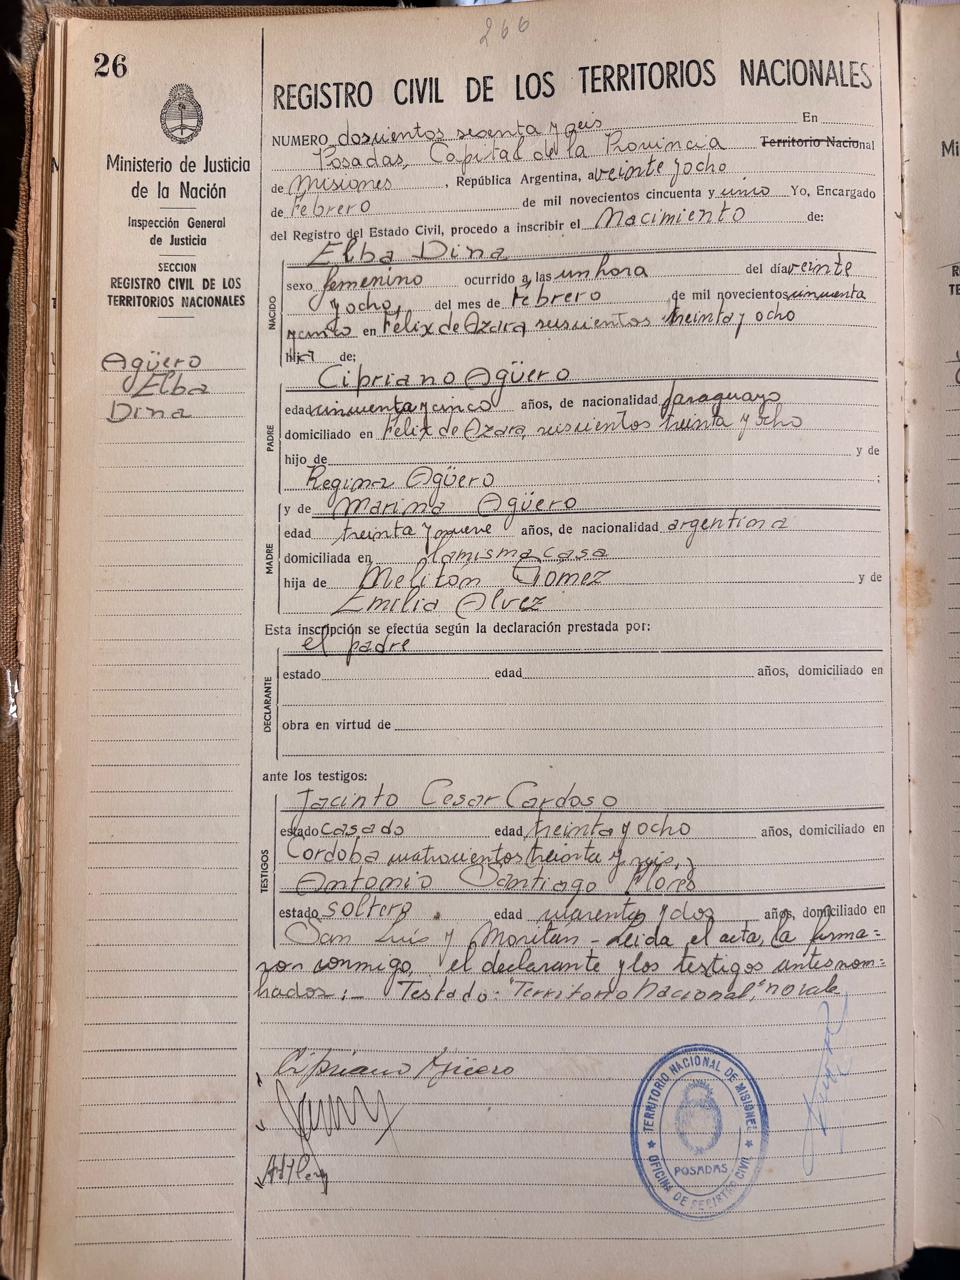 266
26
REGISTRO CIVIL DE LOS TERRITORIOS NACIONALES
Ministerio de Justicia
de la Nación
Inspección General
de Justicia
SECCION
REGISTRO CIVIL DE LOS
TERRITORIOS NACIONALES
Agüero
Elba
Dina
NUMERO doscientos sesenta y seis En
Posadas, Capital de la Provincia Territorio Nacional
de Misiones, República Argentina, a veinte y ocho
de Febrero de mil novecientos cincuenta y uno Yo, Encargado
del Registro del Estado Civil, procedo a inscribir el Nacimiento de:
NACIDO
Elba Dina
sexo femenino ocurrido a las un hora del día veinte
y ocho, del mes de Febrero de mil novecientos cincuenta
en Félix de Azara, seiscientos treinta y ocho
hija de;
PADRE
Cipriano Agüero
edad cincuenta y cinco años, de nacionalidad paraguayo
domiciliado en Félix de Azara, seiscientos treinta y ocho
hijo de y de
Regina Agüero ;
MADRE
y de Marina Agüero
edad treinta y nueve años, de nacionalidad argentina
domiciliada en la misma casa
hija de Melitón Gomez y de
Emilia Alvez
Esta inscripción se efectúa según la declaración prestada por:
el padre
DECLARANTE
estado edad años, domiciliado en
obra en virtud de
ante los testigos:
TESTIGOS
Jacinto Cesar Cardoso
estado casado edad treinta y ocho años, domiciliado en
Cordoba cuatrocientos treinta y seis, y
Antonio Santiago Flores
estado soltero edad cuarenta y dos años, domiciliado en
San Luis y Moritán - Leida el acta, la firma=
ron conmigo, el declarante y los testigos antes nom=
brados:- Testado: "Territorio Nacional," no vale
Cipriano Agüero
TERRITORIO NACIONAL DE MISIONES
POSADAS
OFICINA DE REGISTRO CIVIL